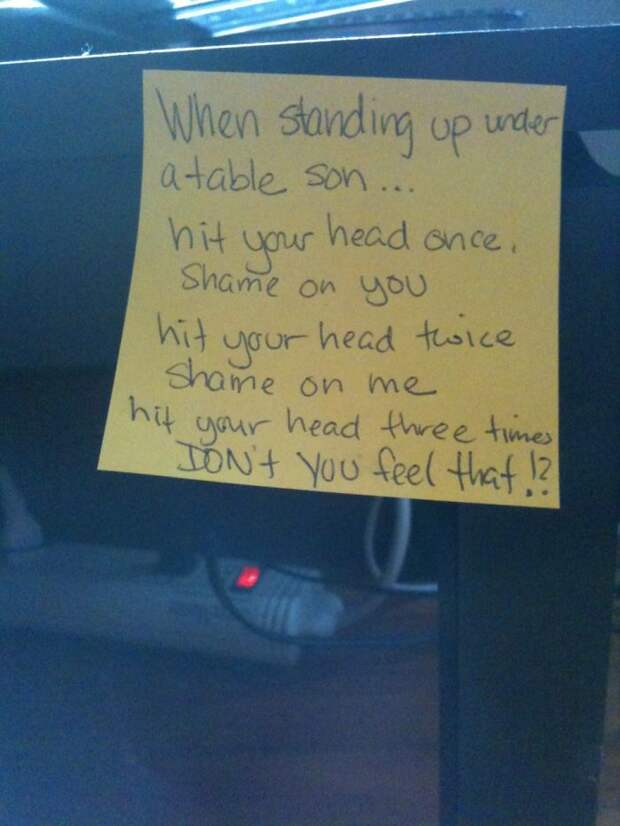 When standing up under
a table son...
hit your head once.
Shame on you
hit your head twice
Shame on me
hit your head three times
DON't YOU feel that!?